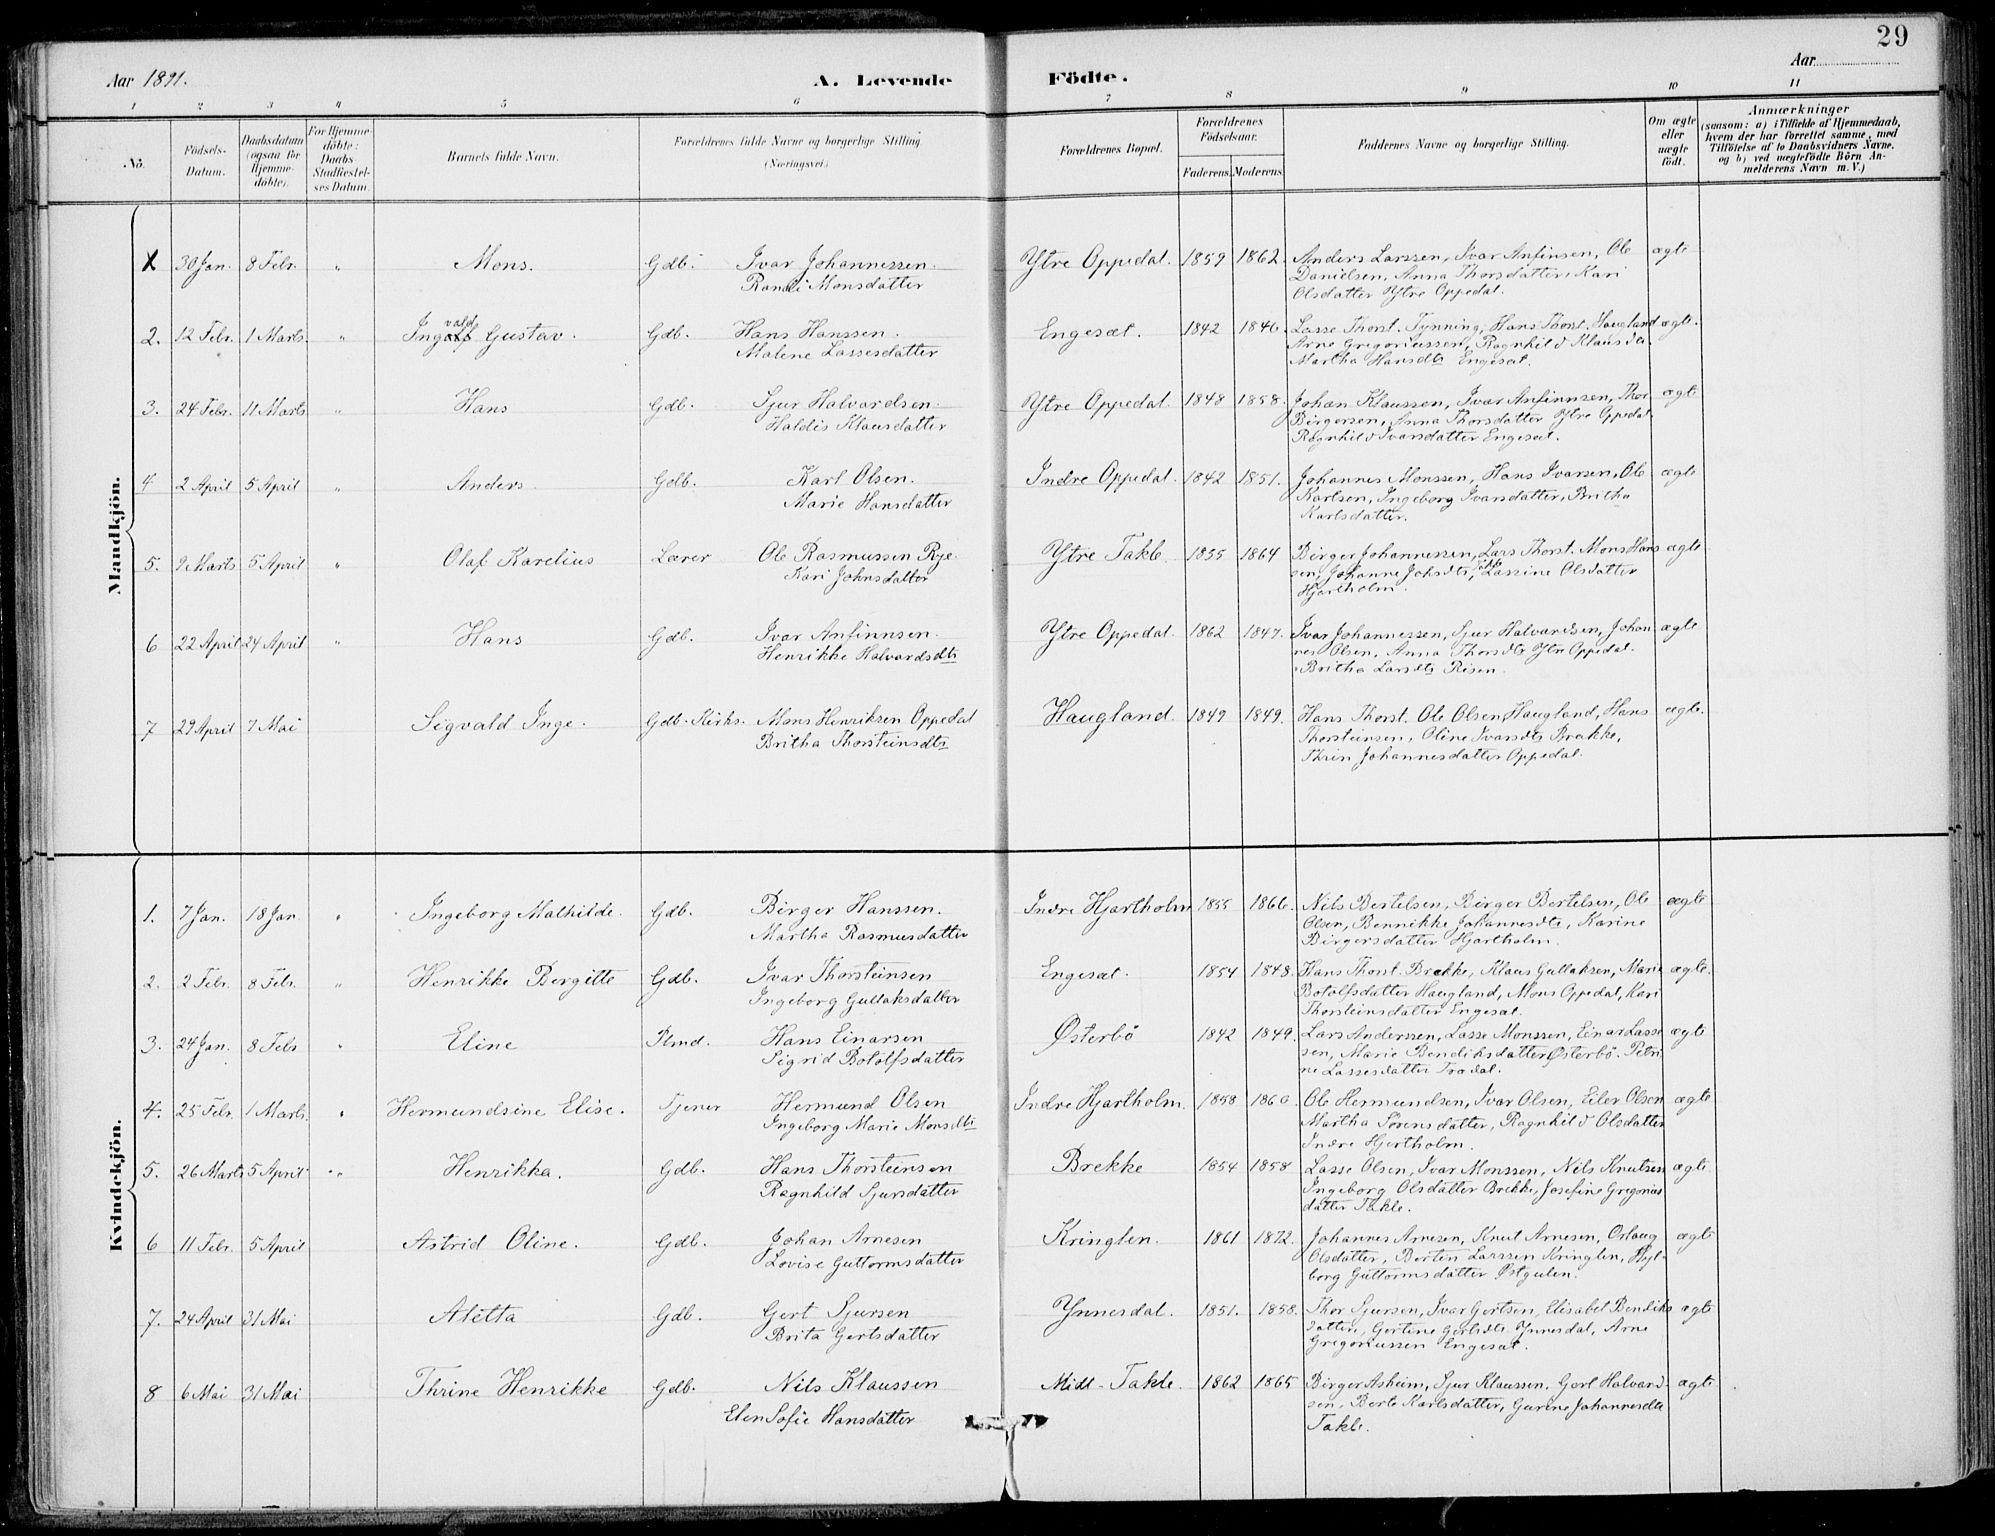 29
Aar 1891.
A. Levende Födte.
Aar
1 2 3 4 5 6 7 8 9 10 11
No.
Födsels-Datum.
Daabsdatum (ogsaa for Hjemmedöbte).
For Hjemmedöbte: Daabs Stadfæstelses Datum.
Barnets fulde Navn.
Forældrenes fulde Navne og borgerlige Stilling (Næringsvei.)
Forældrenes Bopæl.
Forældrenes Födselsaar.
Faderens. Moderens.
Faddernes Navne og borgerlige Stilling.
Om ægte eller uægte födt.
Anmærkninger
(saasom: a) i Tilfælde af Hjemmedaab,
hvem der har forrettet samme, med
Tilföielse af to Daabsvidners Navne.
og b) ved uægtefödte Börn An-
melderens Navn m. V.)
Mandkjön.
1 30 Jan. 8 Febr. " Mons. Gdb. Ivar Johannessen. Ytre Oppedal. 1859 1862. Anders Larssen, Ivar Anfinsen, Ole ægte
Randi Monsdatter Danielsen, Anna Thorsdatter, Kari
Olsdatter Ytre Oppedal.
2. 12 Febr. 1 Marts. " Ingvald Gustav. Gdb. Hans Hanssen. Engesæt. 1842 1846. Lasse Thorst. Tynning, Hans Thorst. Haugland ægte.
Malene Lassesdatter Arne Gregoriussen, Ragnhild Klausda.
Martha Hansdtr Engesæt.
3. 24 Febr. 11 Marts " Hans Gdb. Sjur Halvardsen. Ytre Oppedal. 1848 1858. Johan Klaussen, Ivar Anfinnsen, Thor ægte
Haldis Klausdatter Birgersen, Anna Thorsdatter Ytre Oppedal.
Ragnhild Ivarsdatter Engesæt.
4 2 April 5 April " Anders. Gdb. Karl Olsen. Indre Oppedal. 1842 1851. Johannes Monssen, Hans Ivarsen, Ole ægte
Marie Hansdatter Karlsen, Ingeborg Ivarsdatter, Britha
Karlsdatter.
5. 9 Marts 5 April " Olaf Karelius Lærer Ole Rasmussen Rye. Ytre Takle. 1855 1864 Birger Johannessen, Lars Thorst. Mons Hans ægte
Kari Johnsdatter sen, Johanne Johsdtr, Takle Lassine Olsdatter
Hjartholm.
6 22 April 24 April " Hans Gdb. Ivar Anfinnsen. Ytre Oppedal. 1862 1847. Ivar Johannessen, Sjur Halvardsen, Johan ægte
Henrikke Halvardsdtr nes Olsen, Anna Thorsdtr Ytre Oppedal.
Britha Larsdtr Risen.
7 29 April 7 Mai Sigvald Inge. Gdb. Kirks. Mons Henriksen Oppedal Haugland. 1849 1849. Hans Thorst. Ole Olsen Haugland, Hans ægte.
Britha Thorsteinsdtr Thorsteinsen, Oline Ivarsdtr Brække,
Thrin Johannesdatter Oppedal.
Kvindekjön.
1. 7 Jan. 18 Jan. " Ingeborg Mathilde. Gdb. Birger Hanssen. Indre Hjartholm 1855 1866. Nils Bertelsen, Birger Bertelsen, Ole ægte
Martha Rasmusdatter Olsen, Bennikke Johannesdtr, Karine
Birgersdatter Hjartholm.
2. 2 Febr. 8 Febr. " Henrikke Bergitte Gdb. Ivar Thorsteinsen Engesæt. 1854 1848. Hans Thorst. Brække, Klaus Gullaksen, Marie ægte.
Ingeborg Gullaksdatter Botolfsdatter Haugland, Mons Oppedal, Kari
Thorsteinsdatter Engesæt.
3. 24 Jan. 8 Febr " Eline Plmd. Hans Einarsen Østerbö 1842 1849. Lars Anderssen, Lasse Monssen, Einar Lasse ægte
Sigrid Botolfsdatter sen, Marie Bendiksdatter Østerbö. Petri
ne Lassesdatter Trædal.
4. 25 Febr. 1 Marts. " Hermundsine Elise. Tjener Hermund Olsen Indre Hjartholm. 1858 1860. Ole Hermundsen, Ivar Olsen, Eiler Olsen ægte
Ingeborg Marie Monsdtr Martha Sørensdatter, Ragnhild Olsdatter
Indre Hjartholm.
5. 26 Marts 5 April " Henrikka. Gdb. Hans Thorsteinsen Brekke 1854 1858 Lasse Olsen, Ivar Monssen, Nils Knutsen ægte
Ragnhild Sjursdatter Ingeborg Olsdatter Brekke, Josefine Gregorius
datter Takle.
6 11 Febr. 5 April Astrid Oline. Gdb. Johan Arnesen Kringlen. 1861 1872. Johannes Arnesen, Knut Arnesen, Oslaug ægte
Lovise Guttormsdatter Olsdatter, Berten Larssen Kringlen, Hyl-
borg Guttormsdatter Østgulen.
7. 24 April 31 Mai Aletta Gdb. Gert Sjursen Ynnesdal. 1851. 1858. Thor Sjursen, Ivar Gertsen, Elisabet Bendiks ægte
Brita Gertsdatter datter, Gertine Gertsdtr Ynnesdal, Arne
Gregoriussen Engesæt.
8 6 Mai 31 Mai Thrine Henrikke Gdb. Nils Klaussen Midt-Takle. 1862 1865 Birger Asheim, Sjur Klaussen, Gert Halvard- ægte
Elen Sofie Hansdatter sen, Berte Karlsdatter, Gurine Johannesdtr
Takle.